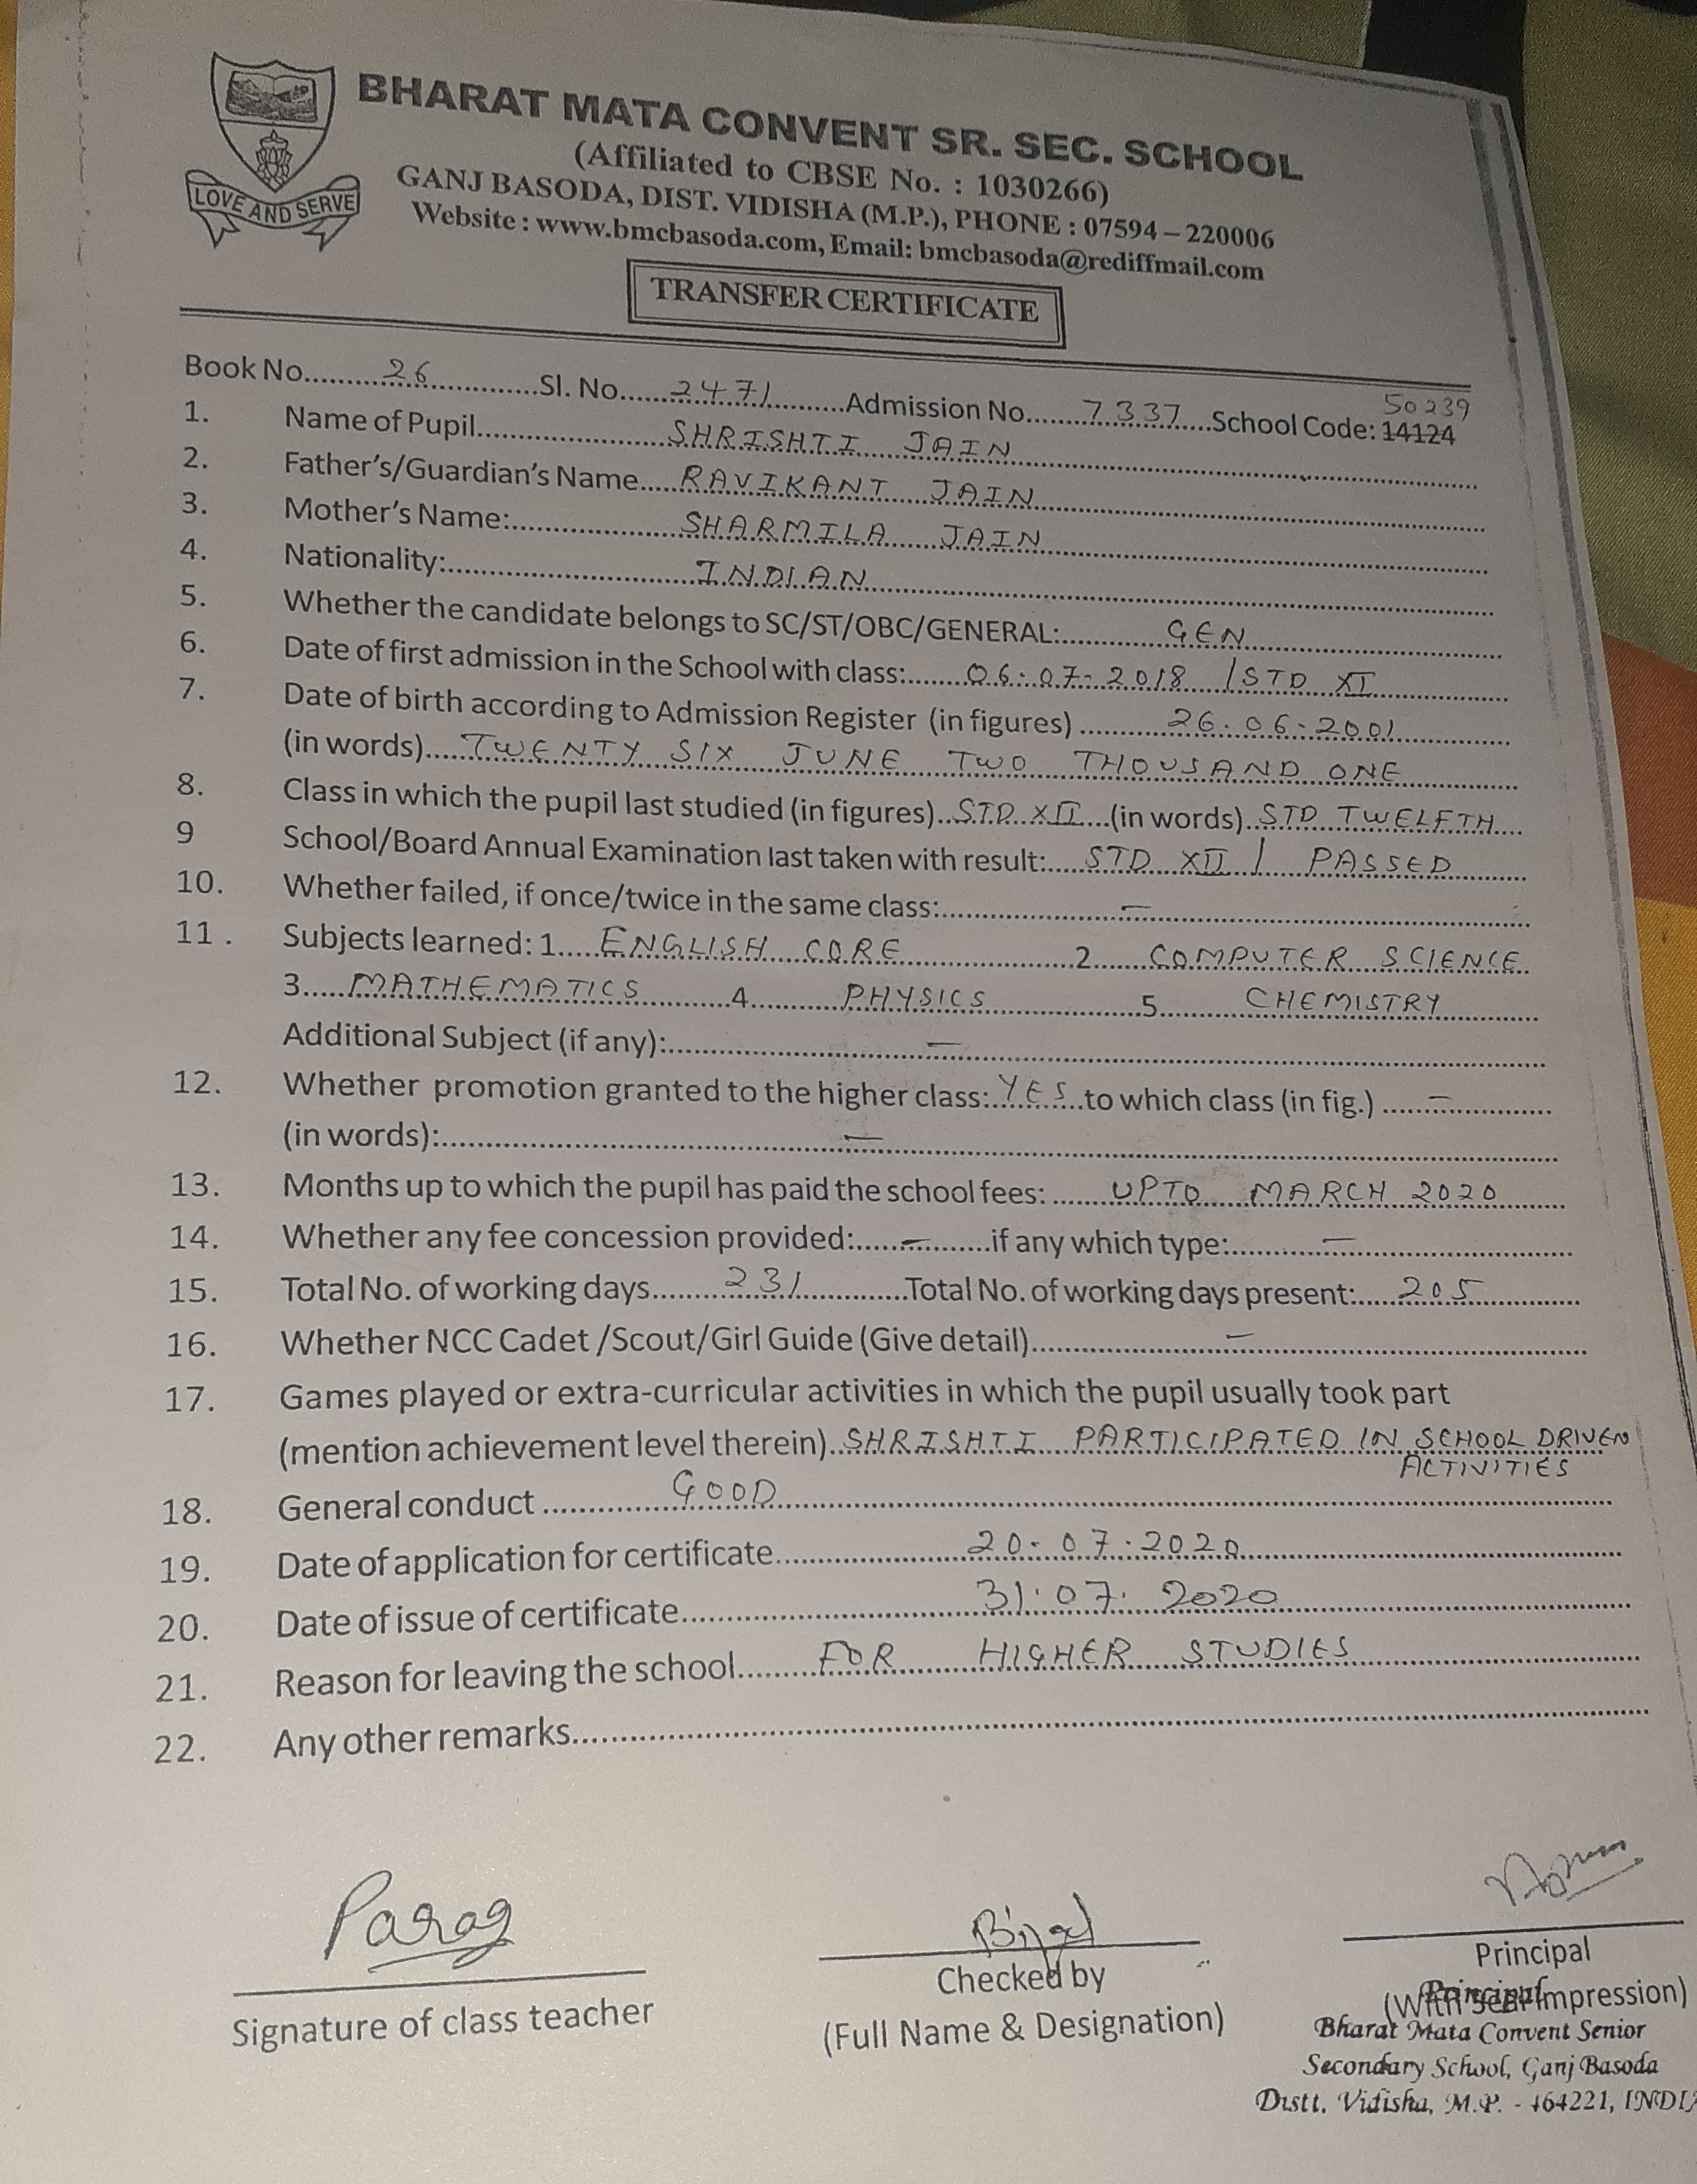 BHARAT MATA CONVENT SR. SEC. SCHOOL
(Affiliated to CBSE No. : 1030266)
GANJ BASODA, DIST. VIDISHA (M.P.), PHONE : 07594 – 220006
Website : www.bmcbasoda.com, Email: bmcbasoda@rediffmail.com
LOVE AND SERVE
TRANSFER CERTIFICATE
50239
Book No. 26 Sl. No. 2471 Admission No. 7337 School Code: 14124
1. Name of Pupil SHRISHTI JAIN
2. Father's/Guardian's Name RAVIKANT JAIN
3. Mother's Name: SHARMILA JAIN
4. Nationality: INDIAN
5. Whether the candidate belongs to SC/ST/OBC/GENERAL: GEN
6. Date of first admission in the School with class: 06-07-2018 / STD XI
7. Date of birth according to Admission Register (in figures) 26.06.2001
(in words) TWENTY SIX JUNE TWO THOUSAND ONE
8. Class in which the pupil last studied (in figures) STD XII (in words) STD TWELFTH
9 School/Board Annual Examination last taken with result: STD XII / PASSED
10. Whether failed, if once/twice in the same class: —
11. Subjects learned: 1. ENGLISH CORE 2. COMPUTER SCIENCE
3. MATHEMATICS 4. PHYSICS 5. CHEMISTRY
Additional Subject (if any): —
12. Whether promotion granted to the higher class: YES to which class (in fig.) —
(in words): —
13. Months up to which the pupil has paid the school fees: UPTO MARCH 2020
14. Whether any fee concession provided: — if any which type: —
15. Total No. of working days 231 Total No. of working days present: 205
16. Whether NCC Cadet /Scout/Girl Guide (Give detail) —
17. Games played or extra-curricular activities in which the pupil usually took part
(mention achievement level therein) SHRISHTI PARTICIPATED IN SCHOOL DRIVEN
ACTIVITIES
18. General conduct GOOD
19. Date of application for certificate 20-07-2020
20. Date of issue of certificate 31.07.2020
21. Reason for leaving the school FOR HIGHER STUDIES
22. Any other remarks
Parag
Signature of class teacher
Checked by
(Full Name & Designation)
Principal
(With Seal Impression)
Principal
Bharat Mata Convent Senior
Secondary School, Ganj Basoda
Distt. Vidisha, M.P. - 464221, INDIA